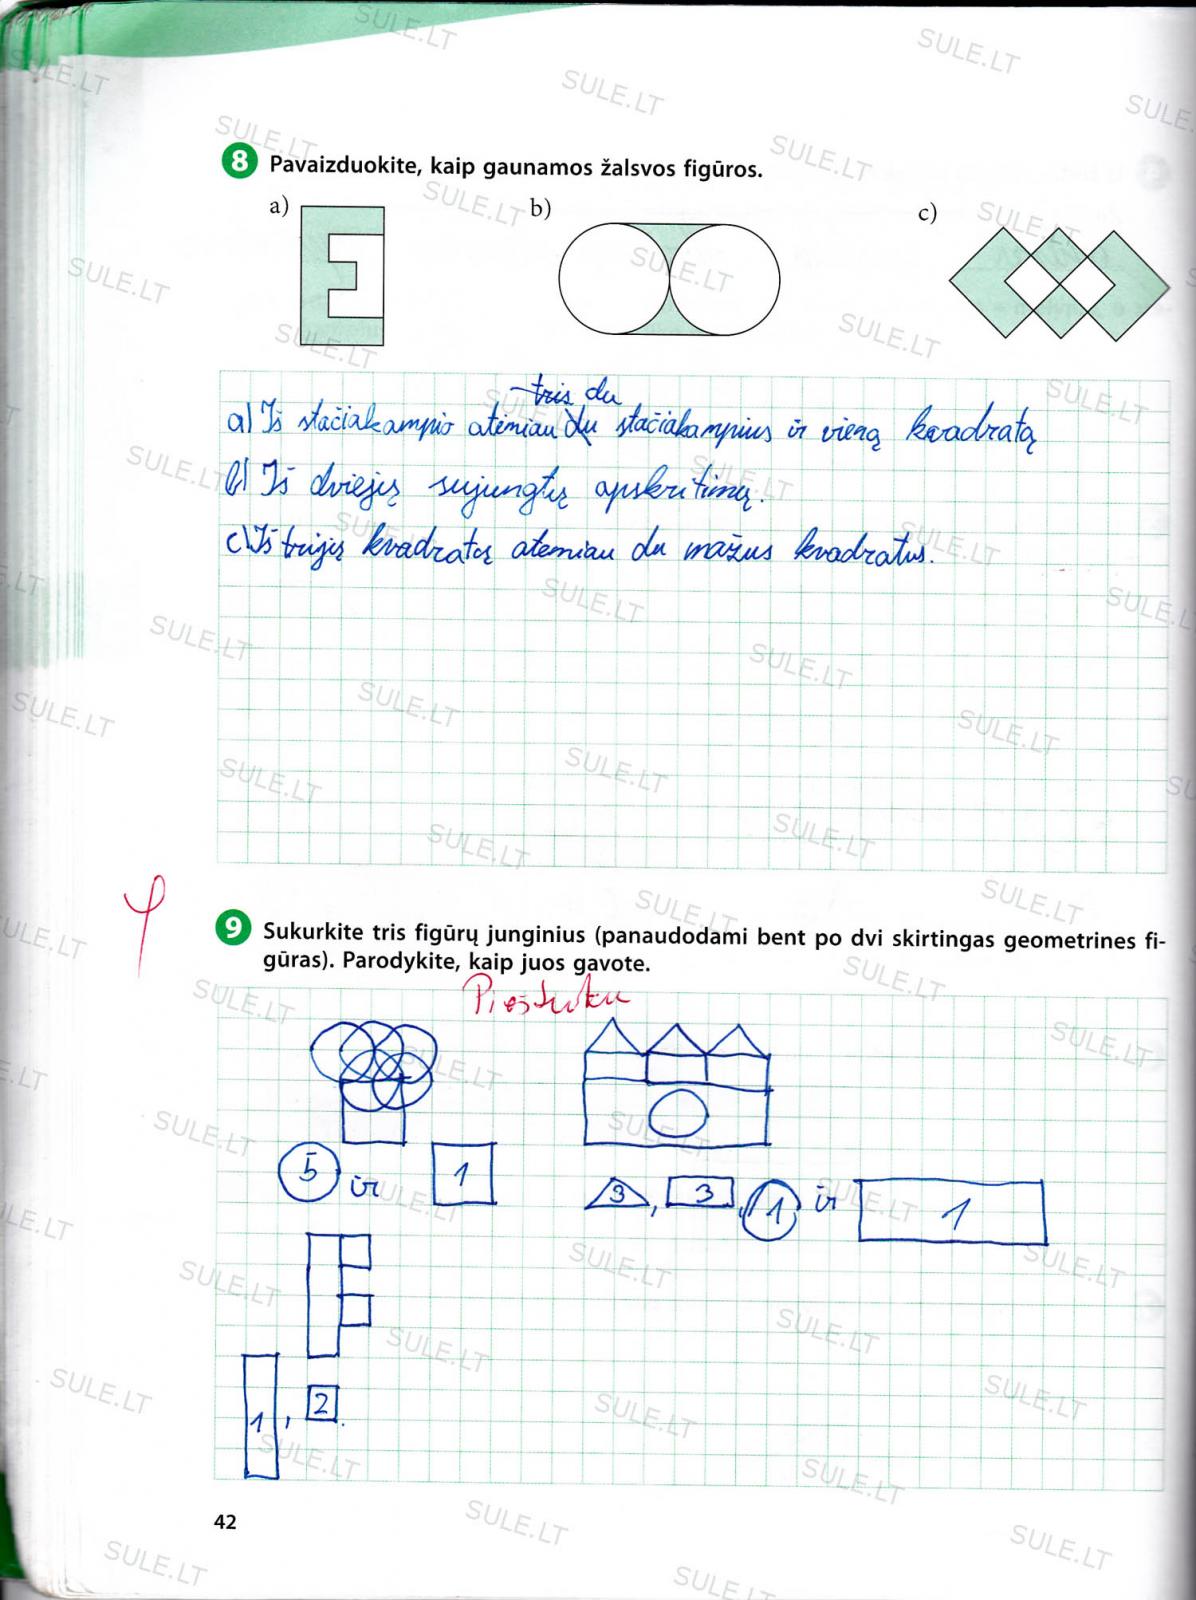 8 Pavaizduokite, kaip gaunamos žalsvos figūros.
a) b) c)
tris du
a) Iš stačiakampio atėmiau du stačiakampius ir vieną kvadratą
b) Iš dviejų sujungtų apskritimų.
c) Iš trijų kvadratų atemiau du mažus kvadratus.
9 Sukurkite tris figūrų junginius (panaudodami bent po dvi skirtingas geometrines fi-
gūras). Parodykite, kaip juos gavote.
Pieštuku
5 ir 1
3, 3, 1 ir 1
1, 2.
42
SULE.LT